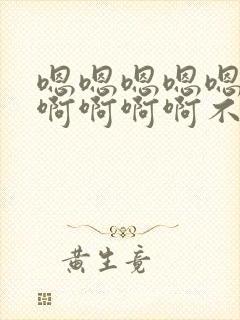 嗯嗯嗯嗯嗯
啊啊啊啊不
黄生竟